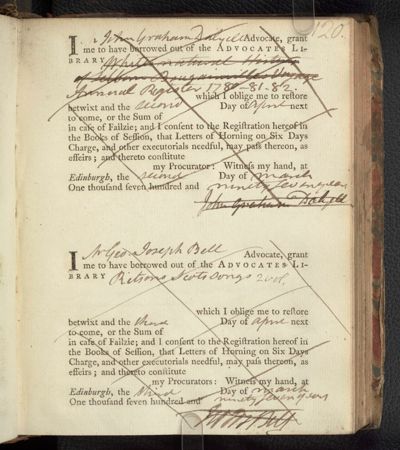 120.
I John Graham Dalyell Advocate, grant
me to have borrowed out of the ADVOCATES LI-
BRARY White's natural History
of Bougainville's Voyage
Annual Register 1780-81-82
which I oblige me to restore
betwixt and the second Day of April next
to come, or the Sum of
in caſe of Failzie; and I conſent to the Regiſtration hereof in
the Books of Seſſion, that Letters of Horning on Six Days
Charge, and other executorials needful, may paſs thereon, as
effeirs; and thereto conſtitute
my Procurator: Witneſs my hand, at
Edinburgh, the second Day of march
One thouſand ſeven hundred and ninety seven years
John Graham Dalyell
I Mr Geo: Joseph Bell Advocate, grant
me to have borrowed out of the ADVOCATES LI-
BRARY Ritsons Scots Songs 2 vol.
which I oblige me to reſtore
betwixt and the third Day of April next
to come, or the Sum of
in caſe of Failzie; and I conſent to the Regiſtration hereof in
the Books of Seſſion, that Letters of Horning on Six Days
Charge, and other executorials needful, may paſs thereon, as
effeirs; and thereto conſtitute
my Procurators: Witneſs my hand, at
Edinburgh, the third Day of march
One thouſand ſeven hundred and ninety seven years
Bell